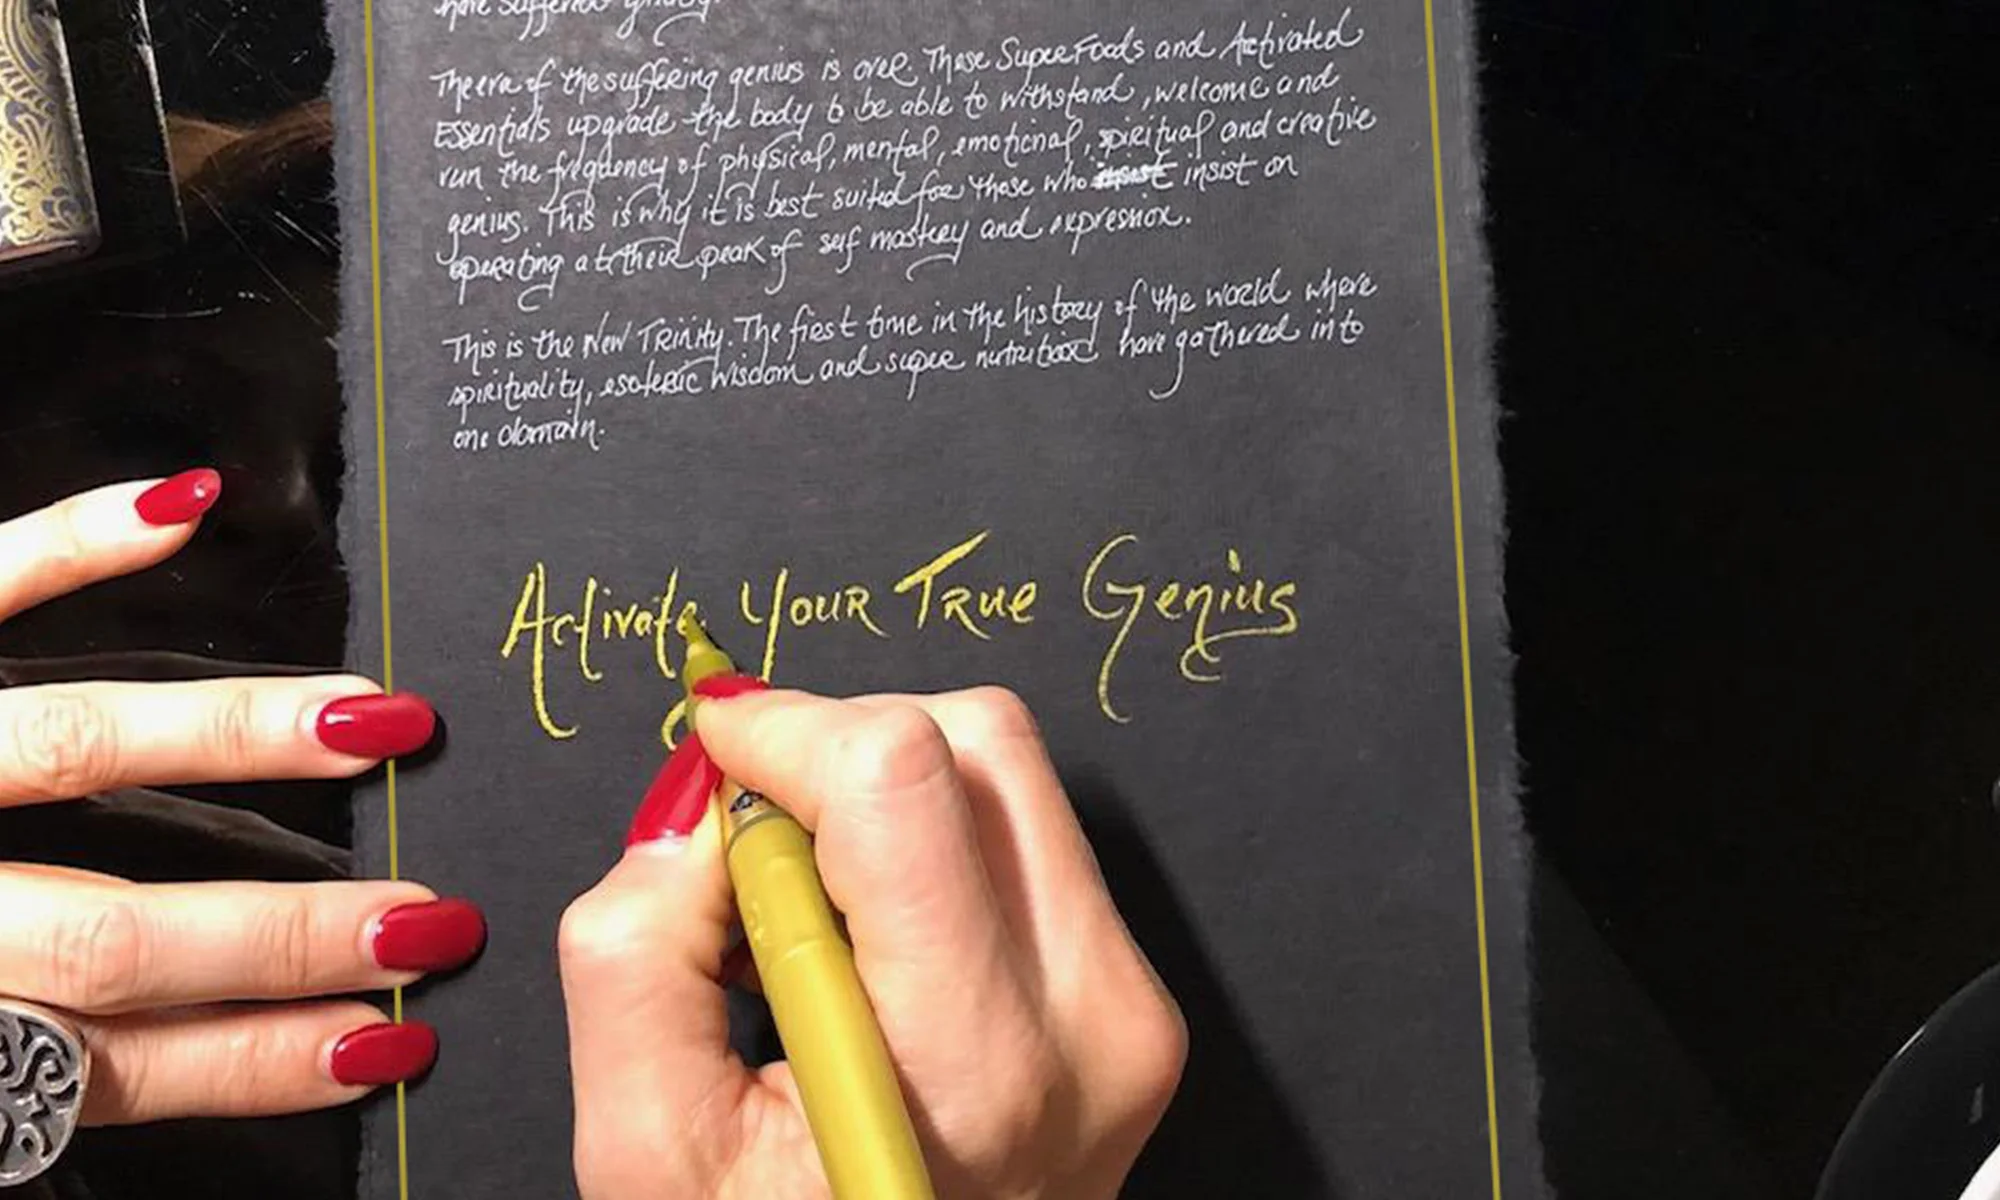 have suffered greatly.
The era of the suffering genius is over. These SuperFoods and Activated
Essentials upgrade the body to be able to withstand, welcome and
run the frequency of physical, mental, emotional, spiritual and creative
genius. This is why it is best suited for those who insist insist on
operating at their peak of self mastery and expression.
This is the New Trinity. The first time in the history of the world where
spirituality, esoteric wisdom and super nutrition have gathered into
one domain.
Activate Your True Genius